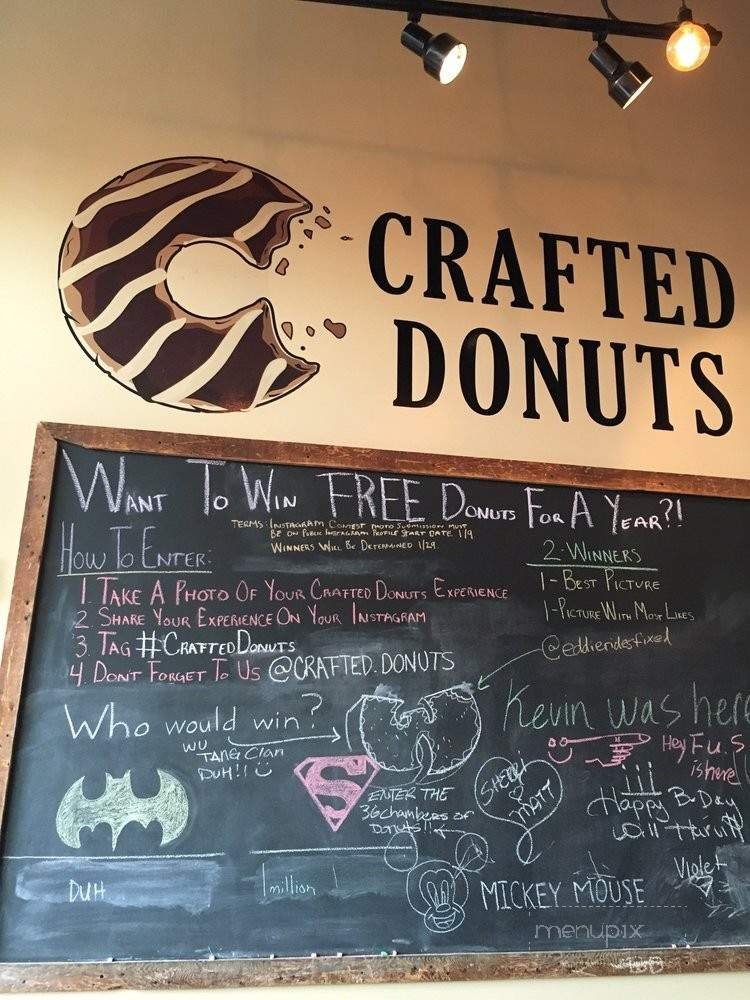 CRAFTED
DONUTS
WANT TO WIN FREE DONUTS FOR A YEAR?!
TERMS: INSTAGRAM CONTEST PHOTO SUBMISSION MUST
BE ON PUBLIC INSTAGRAM PROFILE START DATE 1/9
WINNERS WILL BE DETERMINED 1/29
HOW TO ENTER:
1. TAKE A PHOTO OF YOUR CRAFTED DONUTS EXPERIENCE
2. SHARE YOUR EXPERIENCE ON YOUR INSTAGRAM
3. TAG #CRAFTEDDONUTS
4. DON'T FORGET TO US @CRAFTED.DONUTS
2 WINNERS
1 - BEST PICTURE
1 - PICTURE WITH MOST LIKES
@eddieridesfixed
Who would win?
WU
TANG Clan
DUH!!
Kevin was here
Hey Fu.S
is here
S
ENTER THE
36 chambers OF
Donuts!!
SHERRI
&
MATT
Happy B-Day
Will
DUH
1 million
MICKEY MOUSE
Violet
menupix